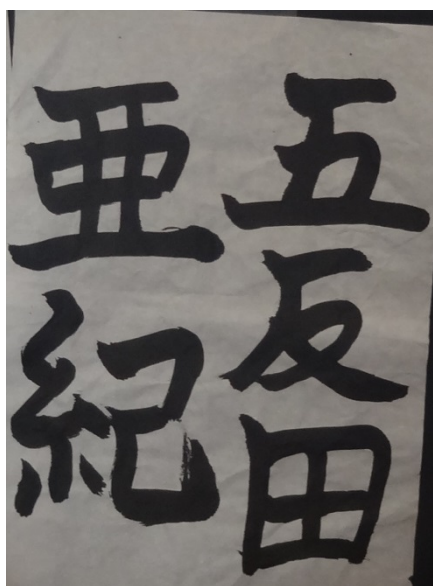 五反田
亜紀